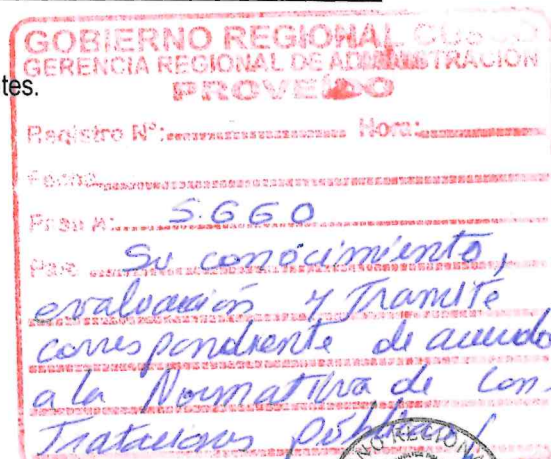 GOBIERNO REGIONAL CUSCO
GERENCIA REGIONAL DE ADMINISTRACIÓN
tes.
PROVEÍDO
Registro Nº: Hora:
Fecha
Pase a: S.GGO
Para Su conocimiento,
evaluación y Tramite
correspondiente de acuerdo
a la Normativa de Con-
Trataciones públicas
NO REGIONA